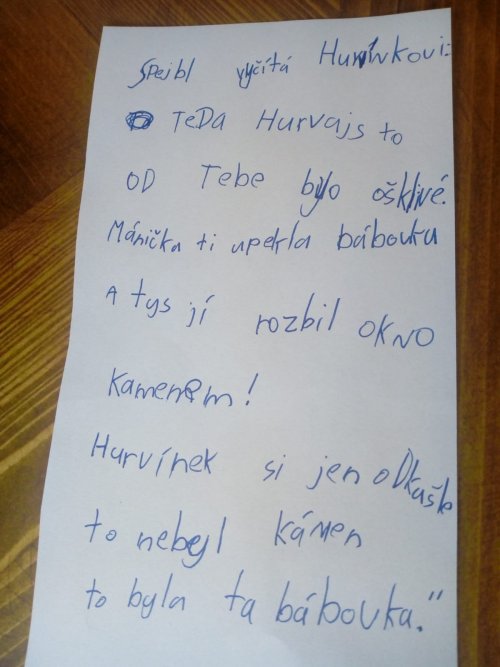 Spejbl vyčítá Hurvínkovi:
TeDa Hurvajs to
OD Tebe bylo ošklivé.
Mánička ti upekla bábovku
A tys jí rozbil OKNO
kamenem!
Hurvínek si jen oDkašle
to nebyl kámen
to byla ta bábovka."